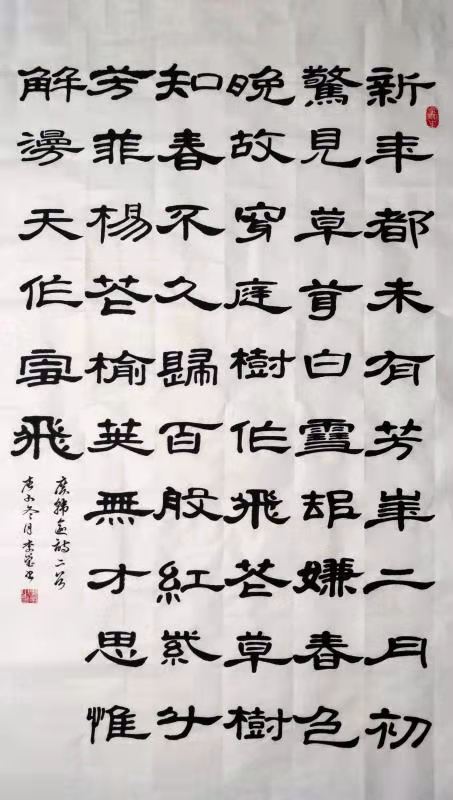 新年都未有芳華二月初
驚見草芽白雪却嫌春色
晚故穿庭樹作飛花草樹
知春不久歸百般紅紫斗
芳菲楊花榆莢無才思惟
解漫天作雪飛
唐韓愈詩二首
庚子冬月李書